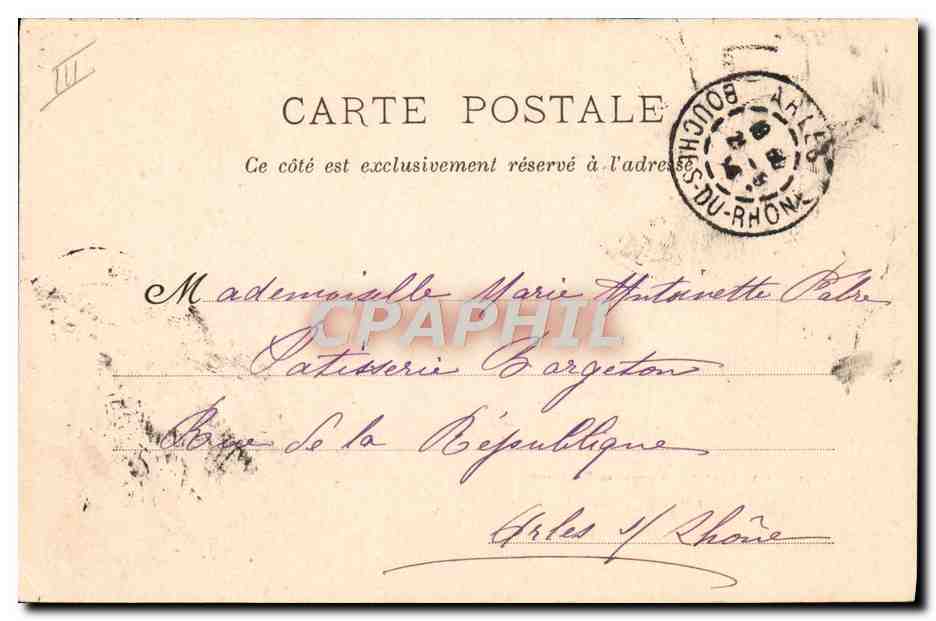 III
CARTE POSTALE
Ce côté est exclusivement réservé à l'adresse
ARLES
BOUCHES-DU-RHÔNE
Mademoiselle Marie Antoinette Fabre
CPAPHIL
Patisserie Bargeton
Rue de la République
Arles s/ Rhône